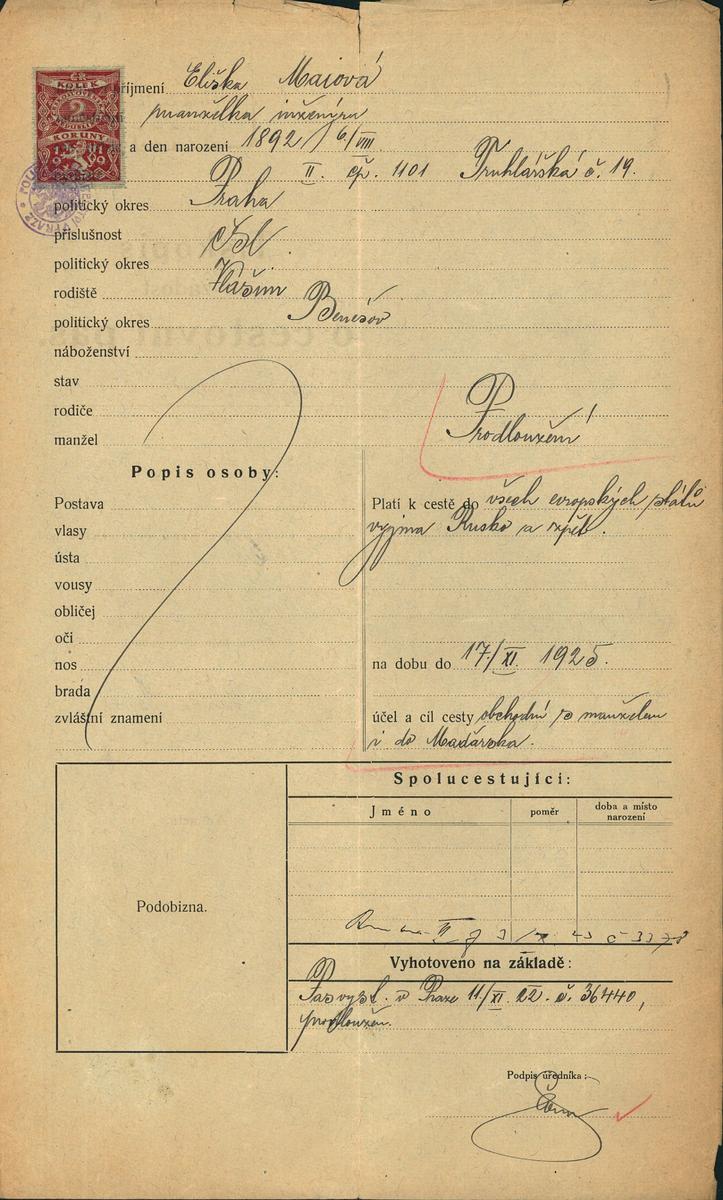 ČR
KOLEK
2
KORUNY
příjmení Eliška Maiová
manželka inženýra
a den narození 1892 6/VIII
II. čp. 1101 Truhlářská č. 19.
politický okres Praha
příslušnost čsl.
politický okres
rodiště Vlašim
politický okres Benešov
náboženství
stav
rodiče
manžel
Prodloužení
Popis osoby:
Postava
vlasy
ústa
vousy
obličej
oči
nos
brada
zvláštní znamení
Platí k cestě do všech evropských států
vyjma Rusko a zpět.
na dobu do 17/XI. 1925.
účel a cíl cesty obchodní s manželem
i do Maďarska.
Podobizna.
Spolucestující:
Jméno
poměr
doba a místo
narození
Vyhotoveno na základě:
Pas vyst. v Praze 11/XI. 22. č. 36440,
prodloužen.
Podpis úředníka: